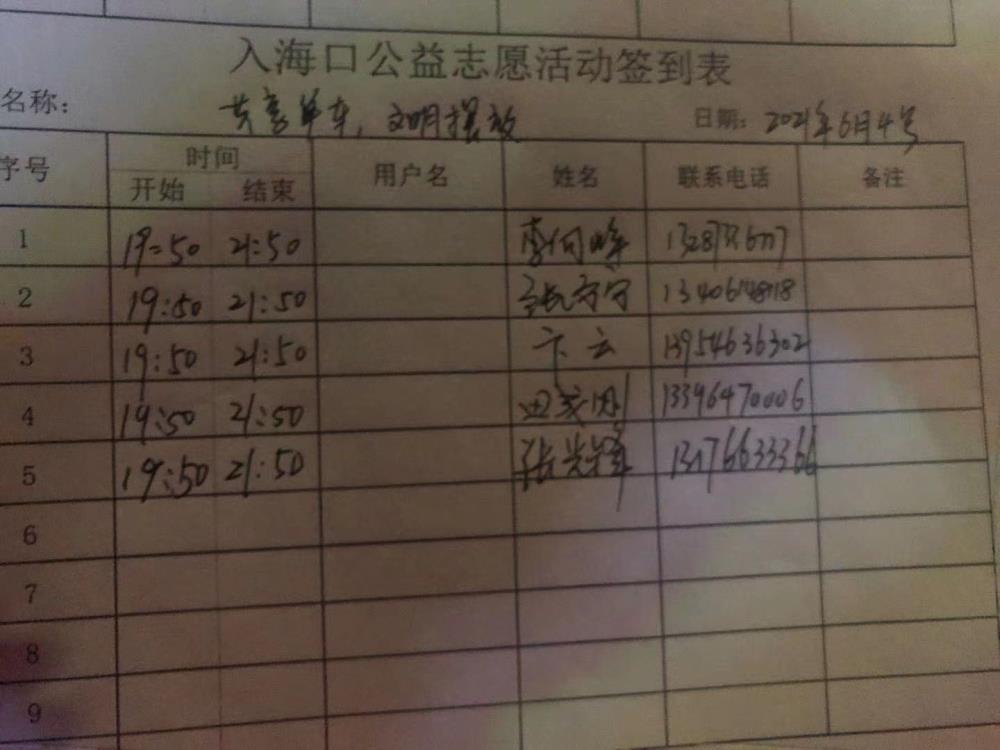 入海口公益志愿活动签到表
名称: 共享单车,文明摆放 日期: 2021年6月4号
序号 时间 用户名 姓名 联系电话 备注
开始 结束
1 19:50 21:50
2 19:50 21:50 张守宁
3 19:50 21:50 卞云 13954636302
4 19:50 21:50 13396470006
5 19:50 21:50 张光峰 13176633366
6
7
8
9